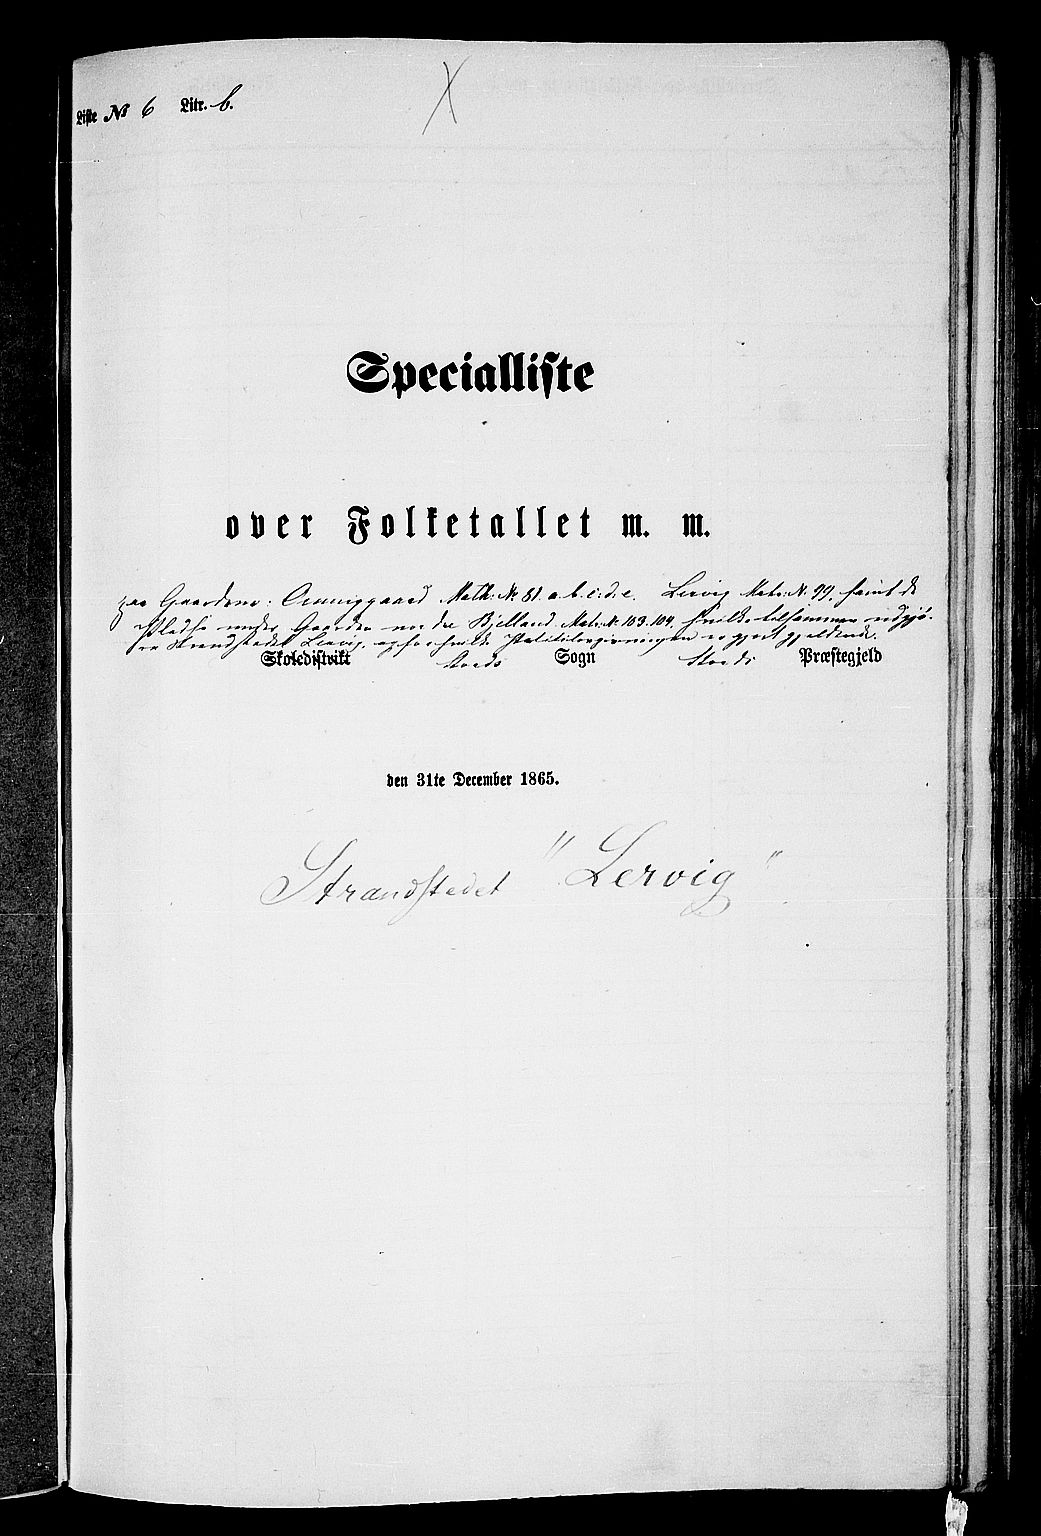 Liste No 6 Litr. b.
Specialliste
over Folketallet m. m.
paa Gaardene: Matr. N. 81. a. b. c. d. e. Lervig Matr: N. 99. samt de
Pladse under Gaarden nordre Bjelland Matr: N. 103. 104, hvilke tilsammen udgjø-
re Strandstedet Lervig, og for hvilke er gjort gjældende.
Skoledistrikt Stords Sogn Stords Præstegjeld
den 31te December 1865.
Strandstedet "Lervig"